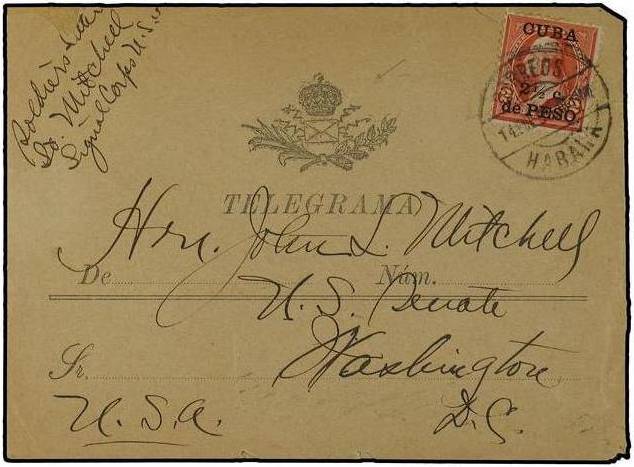 Soldier's Letter
Lt. Mitchell
Signal Corps U.S.
CUBA
2½ c.
de PESO
HABANA
TELEGRAMA
Hon. John L. Mitchell
De Núm.
U.S. Senate
Sr. Washington
U.S.A. D.C.